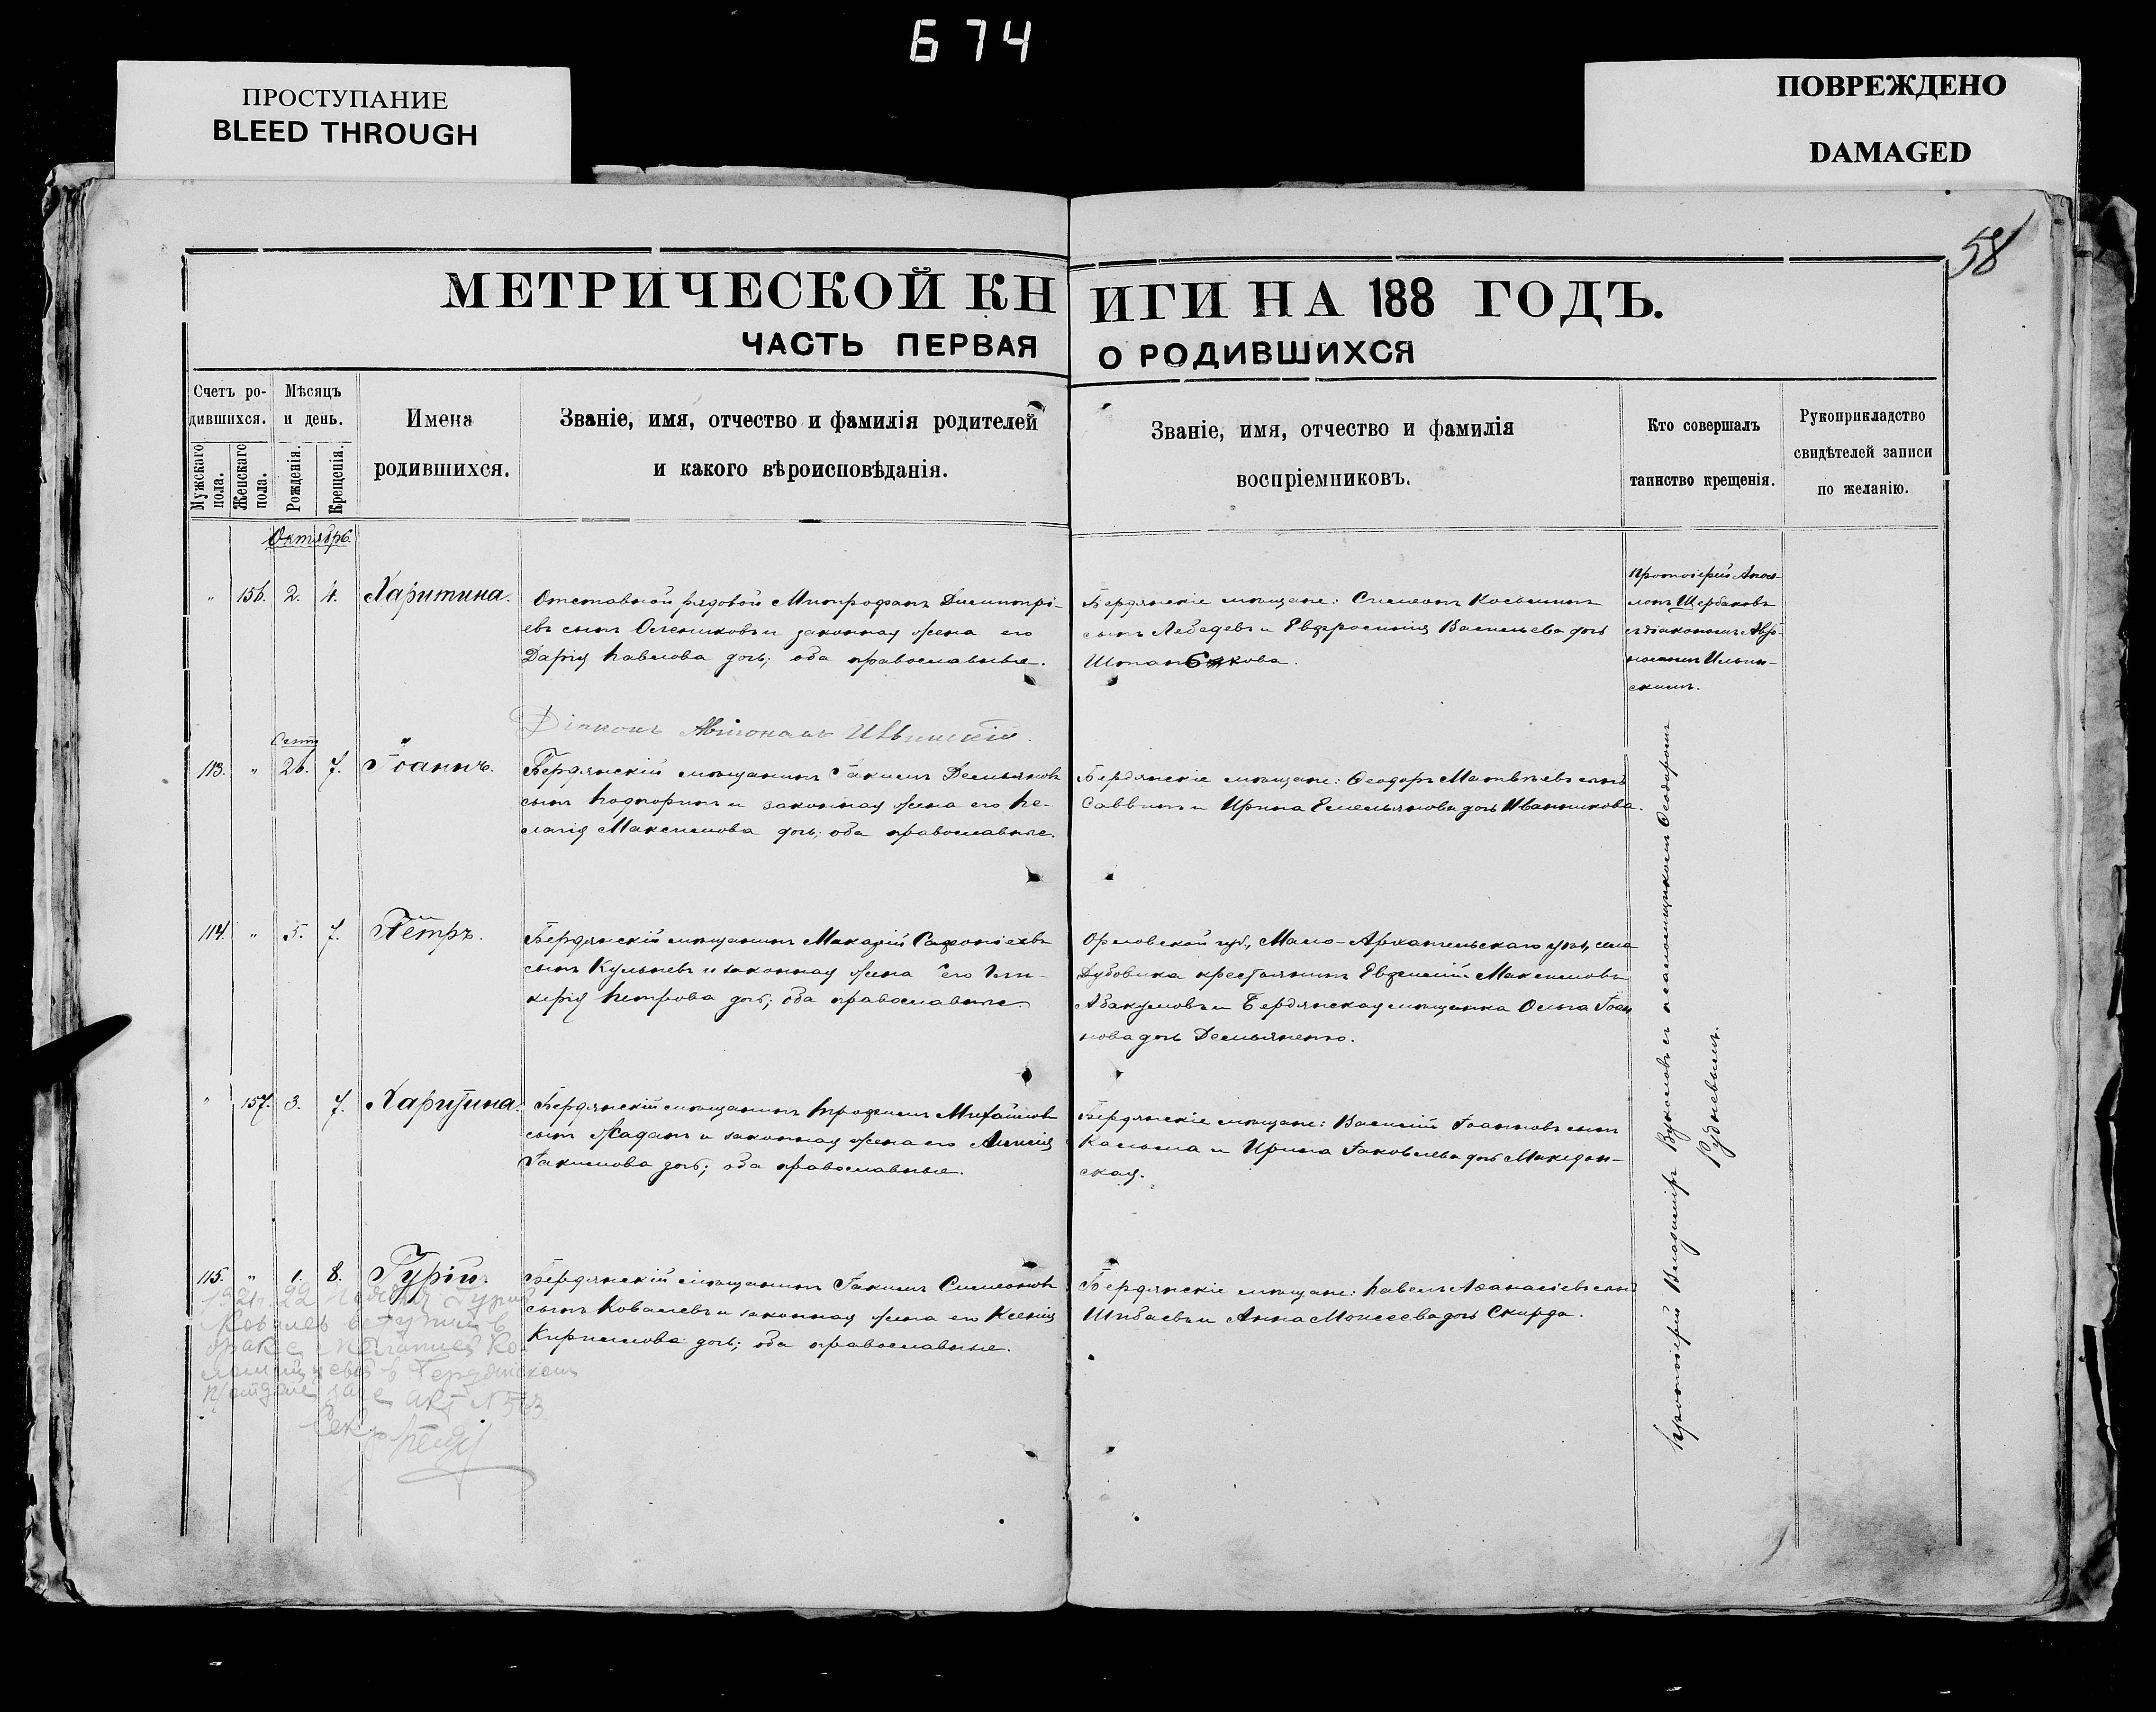 674
ПРОСТУПАНИЕ
BLEED THROUGH
ПОВРЕЖДЕНО
DAMAGED
58
МЕТРИЧЕСКОЙ КНИГИ НА 188 ГОДЪ.
ЧАСТЬ ПЕРВАЯ О РОДИВШИХСЯ
Счетъ ро-
дившихся.
Мужскаго пола.
Женскаго пола.
Мѣсяцъ
и день.
Рожденія.
Крещенія.
Имена
родившихся.
Званіе, имя, отчество и фамилія родителей
и какого вѣроисповѣданія.
Званіе, имя, отчество и фамилія
воспріемниковъ.
Кто совершалъ
таинство крещенія.
Рукоприкладство
свидѣтелей записи
по желанію.
Октябрь.
" 156. 2. 4. Харитина.
Отставной рядовой Митрофанъ Димитрі-
евъ сынъ Олениковъ и законная жена его
Дарія Павлова дочь; оба православные.
Бердянскіе мѣщане: Симеонъ Косьминъ
сынъ Лебедевъ и Евфросинія Васильева дочь
Протоіерей Апол-
лонъ Щербаковъ
съ діакономъ Авто-
номомъ Ильин-
скимъ.
Діаконъ Автономъ Ильинскій.
Сент.
113. " 26. 7. Іоаннъ.
Бердянскій мѣщанинъ Іакимъ Демьяновъ
сынъ Подпоринъ и законная жена его Пе-
лагія Максимова дочь; оба православные.
Бердянскіе мѣщане: Ѳеодоръ Матвѣевъ сынъ
Саввинъ и Ирина Емельянова дочь Иванникова.
114. " 5. 7. Петръ.
Бердянскій мѣщанинъ Макарій Софоніевъ
сынъ Кульневъ и законная жена его Гли-
керія Петрова дочь; оба православные.
Орловской губ., Мало-Архангельскаго уѣзд., села
Дубовика крестьянинъ Евфимій Максимовъ
Абакумовъ и Бердянская мѣщанка Ольга Іоан
нова дочь Демьяненко.
" 157. 3. 7. Харитина.
Бердянскій мѣщанинъ Трофимъ Михайловъ
сынъ Жаданъ и законная жена его
Іакимова дочь; оба православные.
Бердянскіе мѣщане: Василій Іоанновъ сынъ
Касьма и Ирина Іаковлева дочь Македон-
ская.
115. " 1. 8. Гурій.
Бердянскій мѣщанинъ Іакимъ Симеоновъ
сынъ Ковалевъ и законная жена его Ксенія
Кириллова дочь; оба православные.
Бердянскіе мѣщане: Павелъ Аѳанасіевъ сынъ
Шибаевъ и Анна Моисеева дочь Скирда.
Протоіерей Владиміръ Вуколовъ съ псаломщикомъ Ѳеодоромъ
Рудневымъ.
1921 г. 22 Гурий
Ковалев вступил в
брак с Меланией Ко
в Бердянском
акт N 563
Секр